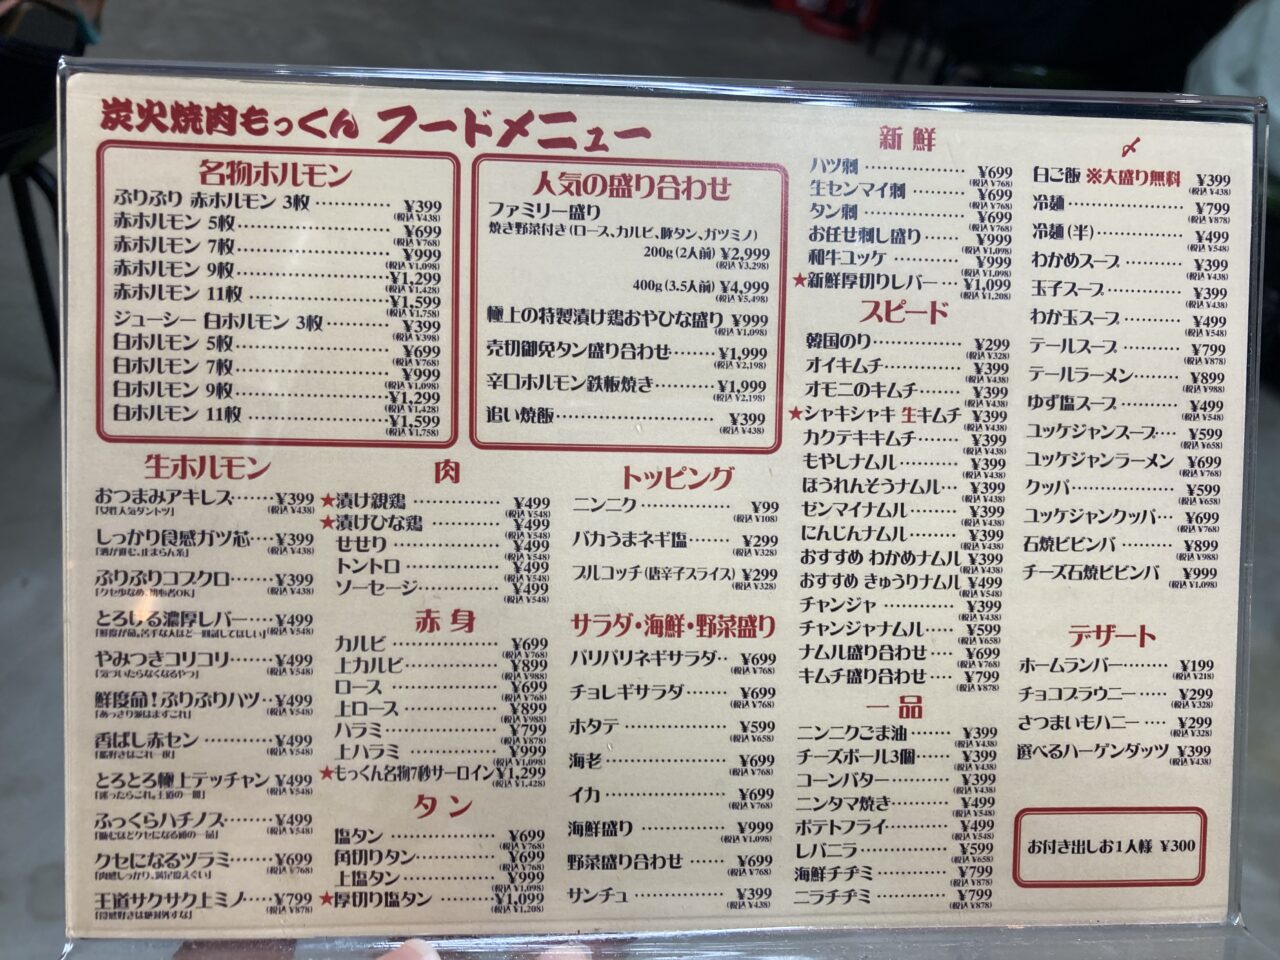 炭火焼肉もっくん フードメニュー
名物ホルモン
ぷりぷり 赤ホルモン 3枚 ¥399
(税込 ¥438)
赤ホルモン 5枚 ¥699
(税込 ¥768)
赤ホルモン 7枚 ¥999
(税込 ¥1,098)
赤ホルモン 9枚 ¥1,299
(税込 ¥1,428)
赤ホルモン 11枚 ¥1,599
(税込 ¥1,758)
ジューシー 白ホルモン 3枚 ¥399
(税込 ¥398)
白ホルモン 5枚 ¥699
(税込 ¥768)
白ホルモン 7枚 ¥999
(税込 ¥1,098)
白ホルモン 9枚 ¥1,299
(税込 ¥1,428)
白ホルモン 11枚 ¥1,599
(税込 ¥1,758)
人気の盛り合わせ
ファミリー盛り
焼き野菜付き(ロース、カルビ、豚タン、ガツミノ)
200g(2人前) ¥2,999
(税込 ¥3,298)
400g(3.5人前) ¥4,999
(税込 ¥5,498)
極上の特製漬け鶏おやひな盛り ¥999
(税込 ¥1,098)
売切御免タン盛り合わせ ¥1,999
(税込 ¥2,198)
辛口ホルモン鉄板焼き ¥1,999
(税込 ¥2,198)
追い焼飯 ¥399
(税込 ¥438)
生ホルモン
おつまみアキレス ¥399
「女性人気ダントツ」 (税込 ¥438)
しっかり食感ガツ芯 ¥399
「酒が進む、止まらん系」 (税込 ¥438)
ぷりぷりコブクロ ¥399
「クセ少なめ、初心者OK」 (税込 ¥438)
とろける濃厚レバー ¥499
「鮮度が命。苦手な人ほど一回試してほしい」 (税込 ¥548)
やみつきコリコリ ¥499
「気づいたらなくなるやつ」 (税込 ¥548)
鮮度命!ぷりぷりハツ ¥499
「あっさり派はまずこれ」 (税込 ¥548)
香ばし赤セン ¥499
(税込 ¥548)
とろとろ極上テッチャン ¥499
「迷ったらこれ。王道の一皿」 (税込 ¥548)
ふっくらハチノス ¥499
「噛むほどクセになる通の一品」 (税込 ¥548)
クセになるツラミ ¥699
(税込 ¥768)
王道サクサク上ミノ ¥799
(税込 ¥878)
肉
★漬け親鶏 ¥499
(税込 ¥548)
★漬けひな鶏 ¥499
(税込 ¥548)
せせり ¥499
(税込 ¥548)
トントロ ¥499
(税込 ¥548)
ソーセージ ¥499
(税込 ¥548)
赤身
カルビ ¥699
(税込 ¥768)
上カルビ ¥899
(税込 ¥988)
ロース ¥699
(税込 ¥768)
上ロース ¥899
(税込 ¥988)
ハラミ ¥799
(税込 ¥878)
上ハラミ ¥999
(税込 ¥1,098)
★もっくん名物7秒サーロイン ¥1,299
(税込 ¥1,428)
タン
塩タン ¥699
(税込 ¥768)
角切りタン ¥699
(税込 ¥768)
上塩タン ¥999
(税込 ¥1,098)
★厚切り塩タン ¥1,099
(税込 ¥1,208)
トッピング
ニンニク ¥99
(税込 ¥108)
バカうまネギ塩 ¥299
(税込 ¥328)
プルコッチ(唐辛子スライス) ¥299
(税込 ¥328)
サラダ・海鮮・野菜盛り
パリパリネギサラダ ¥699
(税込 ¥768)
チョレギサラダ ¥699
(税込 ¥768)
ホタテ ¥599
(税込 ¥658)
海老 ¥699
(税込 ¥768)
イカ ¥699
(税込 ¥768)
海鮮盛り ¥999
(税込 ¥1,098)
野菜盛り合わせ ¥699
(税込 ¥768)
サンチュ ¥399
(税込 ¥438)
新鮮
ハツ刺 ¥699
(税込 ¥768)
生センマイ刺 ¥699
(税込 ¥768)
タン刺 ¥699
(税込 ¥768)
お任せ刺し盛り ¥999
(税込 ¥1,098)
和牛ユッケ ¥999
(税込 ¥1,098)
★新鮮厚切りレバー ¥1,099
(税込 ¥1,208)
スピード
韓国のり ¥299
(税込 ¥328)
オイキムチ ¥399
(税込 ¥438)
オモニのキムチ ¥399
(税込 ¥438)
★シャキシャキ 生キムチ ¥399
(税込 ¥438)
カクテキキムチ ¥399
(税込 ¥438)
もやしナムル ¥399
(税込 ¥438)
ほうれんそうナムル ¥399
(税込 ¥438)
ゼンマイナムル ¥399
(税込 ¥438)
にんじんナムル ¥399
(税込 ¥438)
おすすめ わかめナムル ¥399
(税込 ¥438)
おすすめ きゅうりナムル ¥499
(税込 ¥548)
チャンジャ ¥399
(税込 ¥438)
チャンジャナムル ¥599
(税込 ¥658)
ナムル盛り合わせ ¥699
(税込 ¥768)
キムチ盛り合わせ ¥799
(税込 ¥878)
一品
ニンニクごま油 ¥399
(税込 ¥438)
チーズボール3個 ¥399
(税込 ¥438)
コーンバター ¥399
(税込 ¥438)
ニンタマ焼き ¥499
(税込 ¥548)
ポテトフライ ¥499
(税込 ¥548)
レバニラ ¥599
(税込 ¥658)
海鮮チヂミ ¥799
(税込 ¥878)
ニラチヂミ ¥799
(税込 ¥878)
〆
白ご飯 ※大盛り無料 ¥399
(税込 ¥438)
冷麺 ¥799
(税込 ¥878)
冷麺(半) ¥499
(税込 ¥548)
わかめスープ ¥399
(税込 ¥438)
玉子スープ ¥399
(税込 ¥438)
わか玉スープ ¥499
(税込 ¥548)
テールスープ ¥799
(税込 ¥878)
テールラーメン ¥899
(税込 ¥988)
ゆず塩スープ ¥499
(税込 ¥548)
ユッケジャンスープ ¥599
(税込 ¥658)
ユッケジャンラーメン ¥699
(税込 ¥768)
クッパ ¥599
(税込 ¥658)
ユッケジャンクッパ ¥699
(税込 ¥768)
石焼ビビンバ ¥899
(税込 ¥988)
チーズ石焼ビビンバ ¥999
(税込 ¥1,098)
デザート
ホームランバー ¥199
(税込 ¥218)
チョコブラウニー ¥299
(税込 ¥328)
さつまいもハニー ¥299
(税込 ¥328)
選べるハーゲンダッツ ¥399
(税込 ¥438)
お付き出しお1人様 ¥300